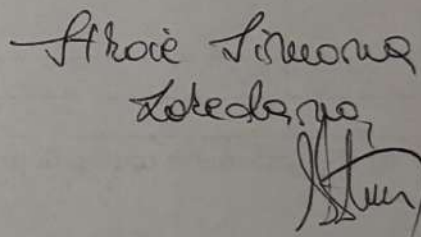 Stroie Simona
Loredana